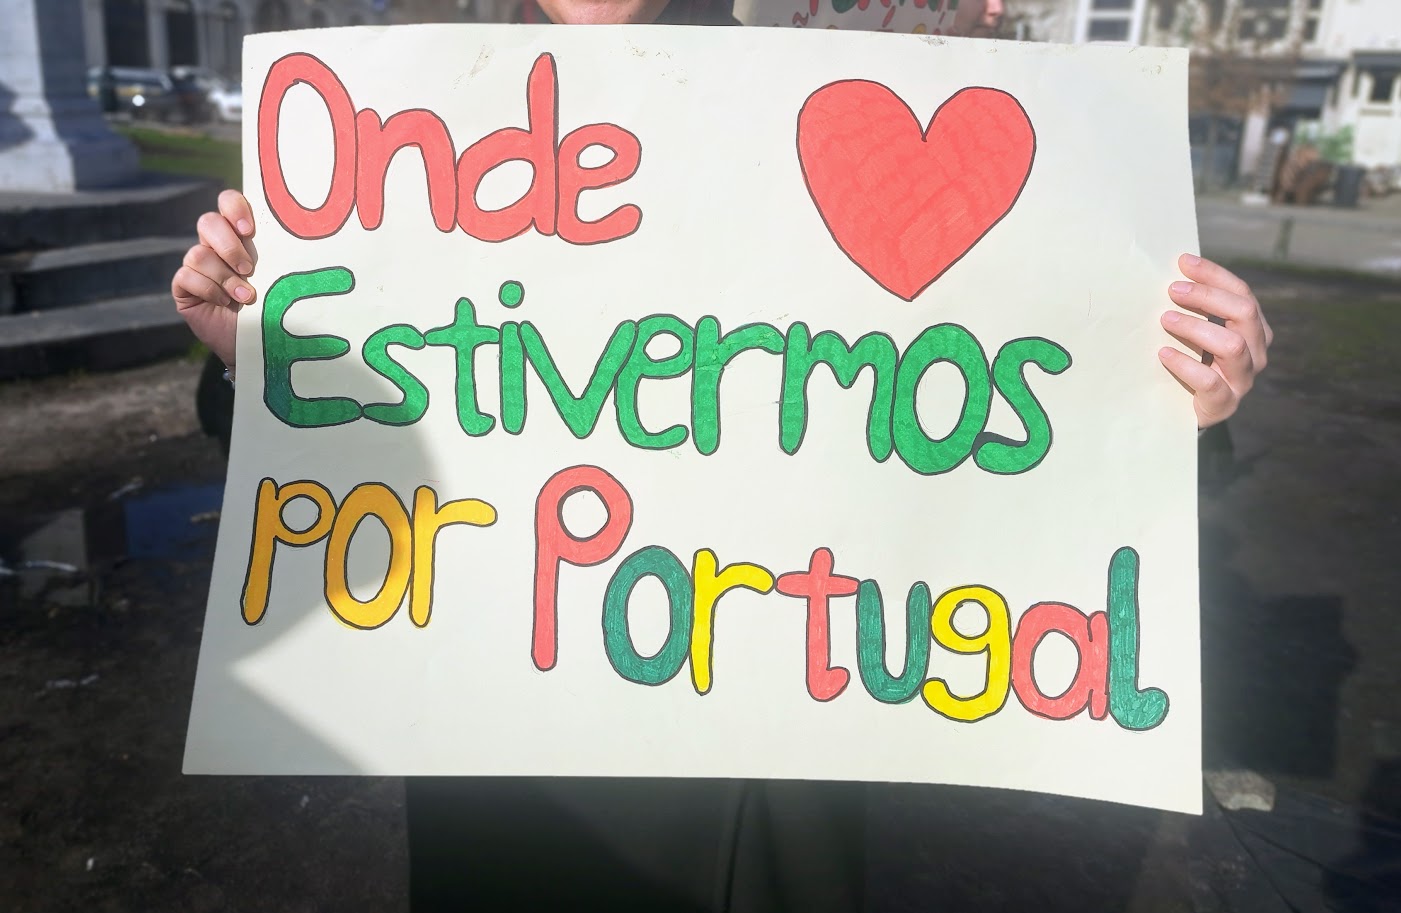 Onde
Estivermos
por Portugal